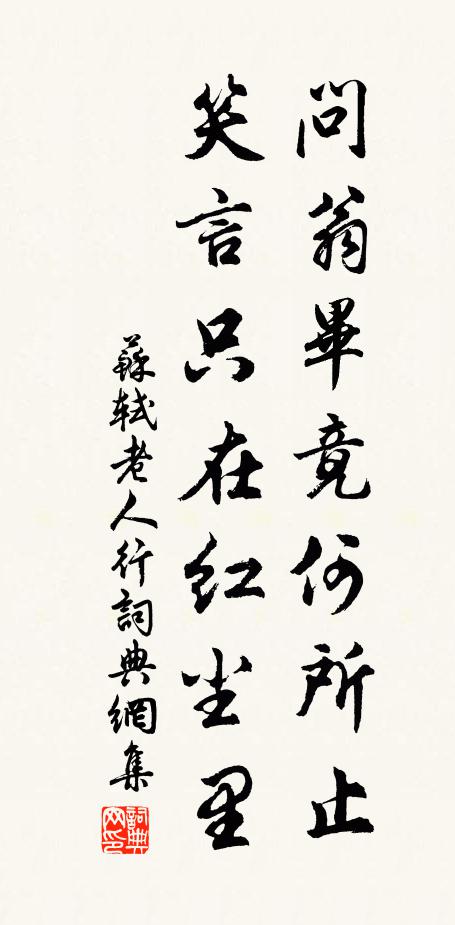 問翁畢竟何所止
笑言只在紅尘里
蘇軾老人行詞典網集
詞典网印